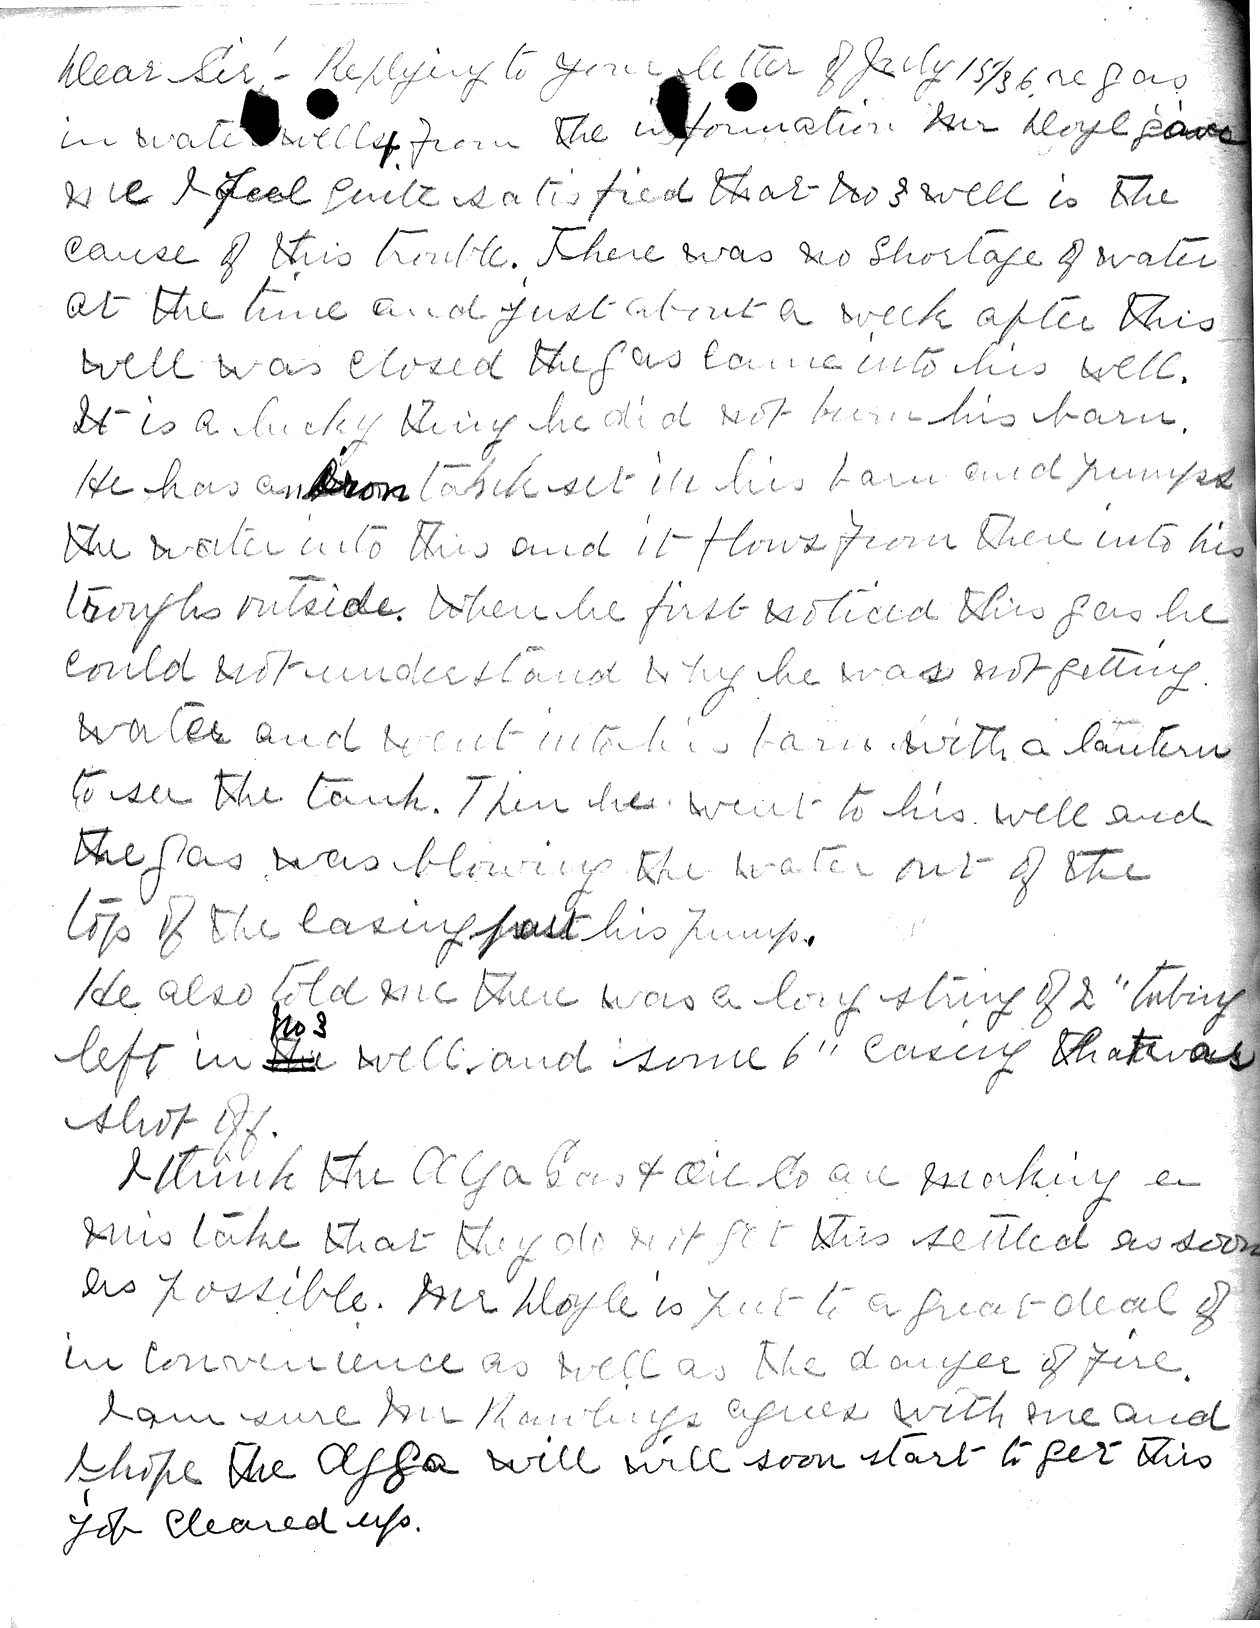 Dear Sir! - Replying to your letter of July 15/36. re gas
in water wells, From the information Mr Doyl gave
me I feel quite satisfied that No 3 well is the
cause of this trouble. There was no shortage of water
at the time and just about a week after this
well was closed the gas came into his well.
It is a lucky thing he did not burn his barn.
He has an iron tank set in his barn and pumps
the water into this and it flows from there into his
troughs outside. When he first noticed this gas he
could not understand why he was not getting
water and went into his barn with a lantern
to see the tank. Then he went to his well and
the gas was blowing the water out of the
top of the casing past his pump.
He also told me there was a long string of 2" tubing
No 3
left in the well. and some 6" casing that was
shot off.
I think the Gas & Oil Co are making a
mistake that they do not get this settled as soon
as possible. Mr Doyle is put to a great deal of
in convenience as well as the danger of fire.
I am sure Mr Rawlings agrees with me and
I hope the will will soon start to get this
job cleared up.